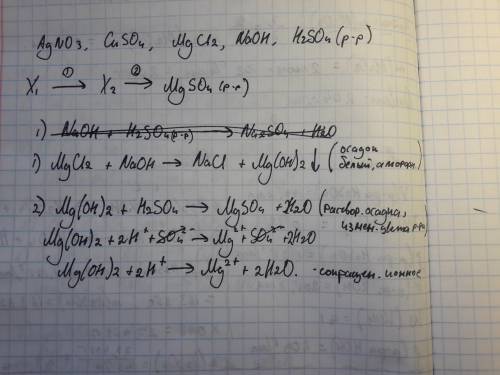 AgNO3, CuSO4, MgCl2, NaOH, H2SO4 (р-р)
X1 —①→ X2 —②→ MgSO4 (р-р)
1) NaOH + H2SO4 (р-р) → Na2SO4 + H2O
1) MgCl2 + NaOH → NaCl + Mg(OH)2↓ (осадок белый, аморфн.)
2) Mg(OH)2 + H2SO4 → MgSO4 + H2O (раствор. осадка, измен. цвета р-ра
Mg(OH)2 + 2H+ + SO4 2- → Mg2+ + SO4 2- + 2H2O
Mg(OH)2 + 2H+ → Mg2+ + 2H2O. - сокращен. ионное